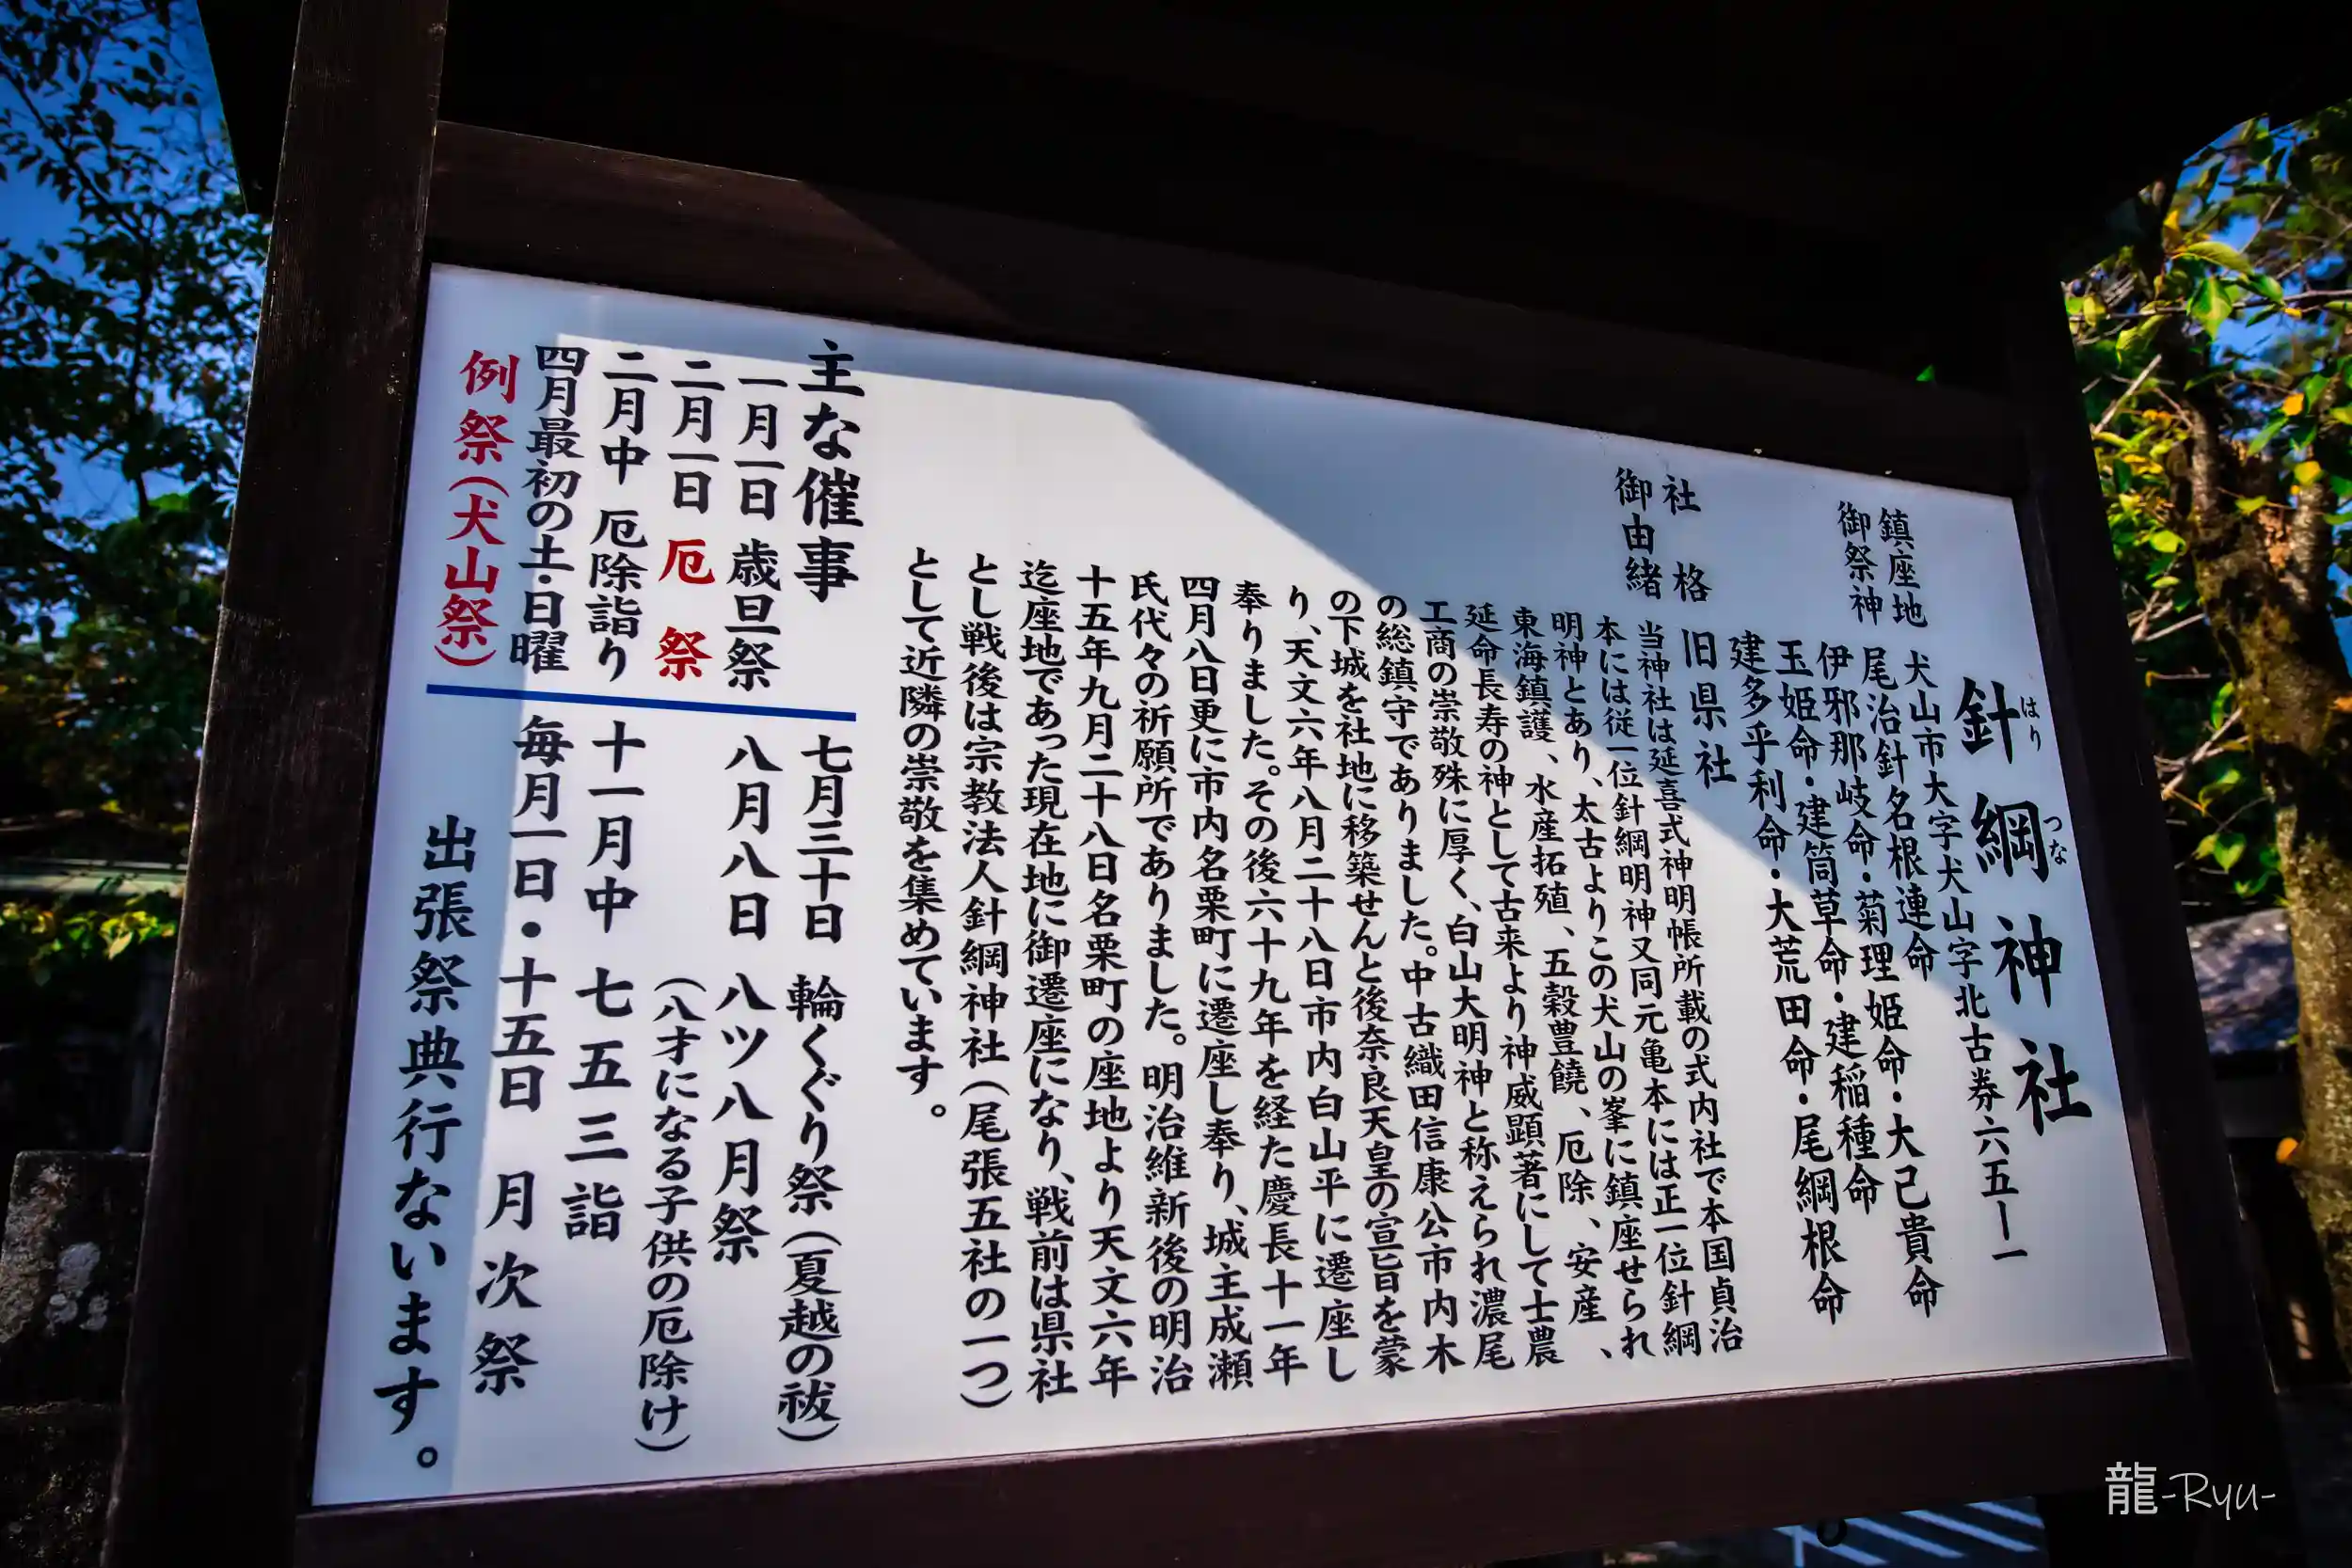 針綱神社
はり
つな
鎮座地
犬山市大字犬山字北古券六五ー一
御祭神
尾治針名根連命
伊邪那岐命・菊理姫命・大己貴命
玉姫命・建筒草命・建稲種命
建多乎利命・大荒田命・尾綱根命
社格
旧県社
御由緒
当神社は延喜式神明帳所載の式内社で本国貞治
本には従一位針綱明神又同元亀本には正一位針綱
明神とあり、太古よりこの犬山の峯に鎮座せられ
東海鎮護、水産拓殖、五穀豊饒、厄除、安産、
延命長寿の神として古来より神威顕著にして士農
工商の崇敬殊に厚く、白山大明神と称えられ濃尾
の総鎮守でありました。中古織田信康公市内木
の下城を社地に移築せんと後奈良天皇の宣旨を蒙
り、天文六年八月二十八日市内白山平に遷座し
奉りました。その後六十九年を経た慶長十一年
四月八日更に市内名栗町に遷座し奉り、城主成瀬
氏代々の祈願所でありました。明治維新後の明治
十五年九月二十八日名栗町の座地より天文六年
迄座地であった現在地に御遷座になり、戦前は県社
とし戦後は宗教法人針綱神社(尾張五社の一つ)
として近隣の崇敬を集めています。
主な催事
一月一日 歳旦祭
二月一日 厄祭
二月中 厄除詣り
四月最初の土・日曜
例祭(犬山祭)
七月三十日 輪くぐり祭(夏越の祓)
八月八日 八ツ八月祭
(八才になる子供の厄除け)
十一月中 七五三詣
毎月一日・十五日 月次祭
出張祭典行ないます。
龍-Ryu-